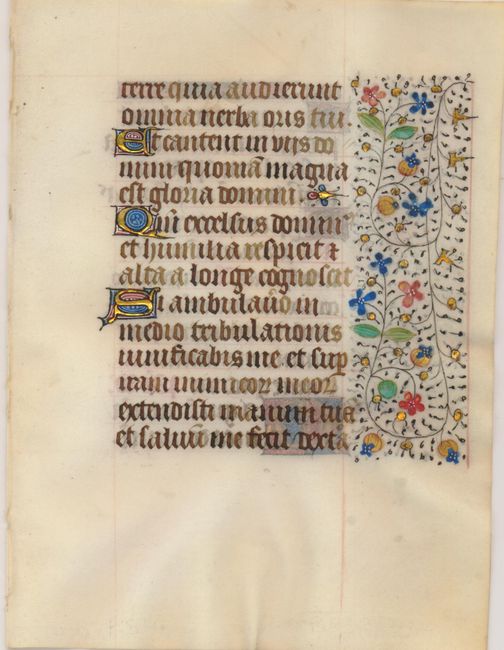 terre quia audierunt
omnia uerba oris tui
Et cantent in uijs do
mini quoniā magna
est gloria domini.
Qm̄ excelsus domin⁹
et humilia respicit ⁊
alta a longe cognoscit
Si ambulauo in
medio tribulationis
uiuificabis me et sup
iram inimicoꝝ meoꝝ
extendisti manum tuā
et saluū me fecit dexta